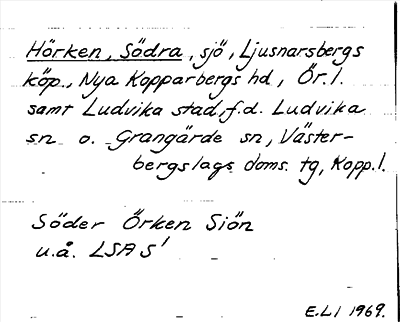 Hörken, Södra, sjö, Ljusnarsbergs
köp., Nya Kopparbergs hd, Ör. l.
samt Ludvika stad, f.d. Ludvika
sn o. Grangärde sn, Väster-
bergslags doms. tg, Kopp. l.
Söder Örken Siön
u.å. LSA S'
E.Li 1969.